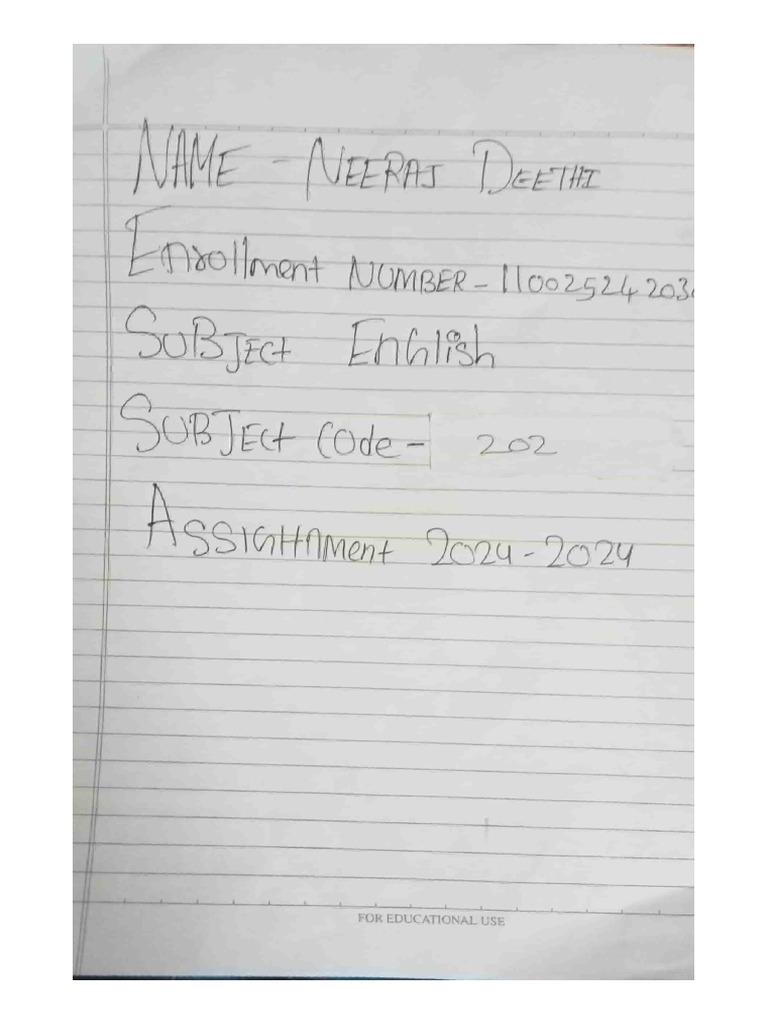 NAME - NEERAJ DEETHI
Enrollment NUMBER - 11002524203
SUBJECT English
SUBJECT Code - 202
ASSIGHNment 2024-2024
FOR EDUCATIONAL USE